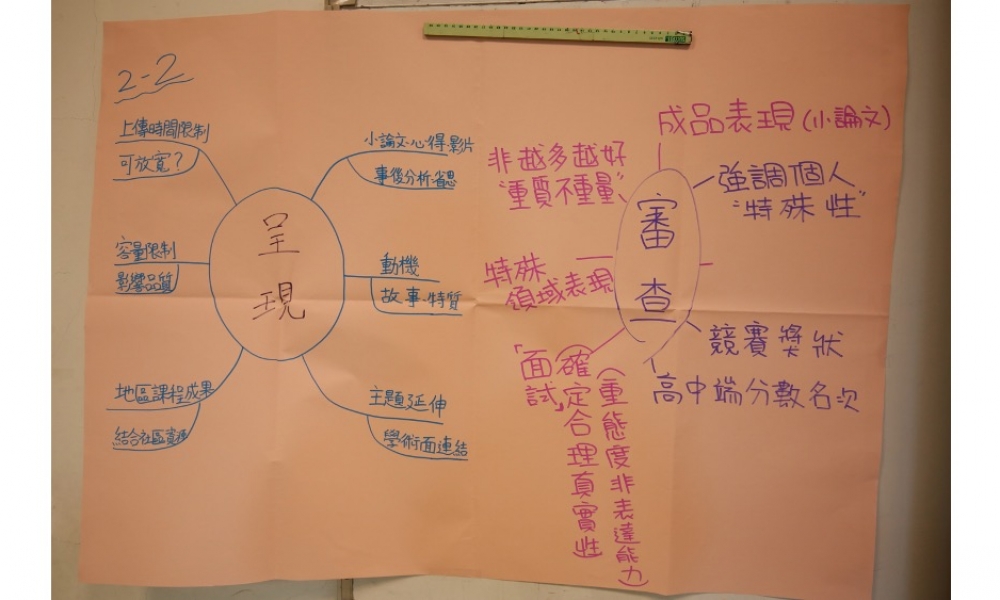 2-2
呈
現
上傳時間限制
可放寬？
容量限制
影響品質
地區課程成果
結合社區資源
小論文、心得、影片
事後分析、省思
動機
故事、特質
主題延伸
學術面連結
審
查
成品表現(小論文)
強調個人
"特殊性"
競賽獎狀
高中端分數名次
非越多越好
"重質不重量"
特殊
領域表現
「面試」
(確定合理真實性
(重態度非表達能力)